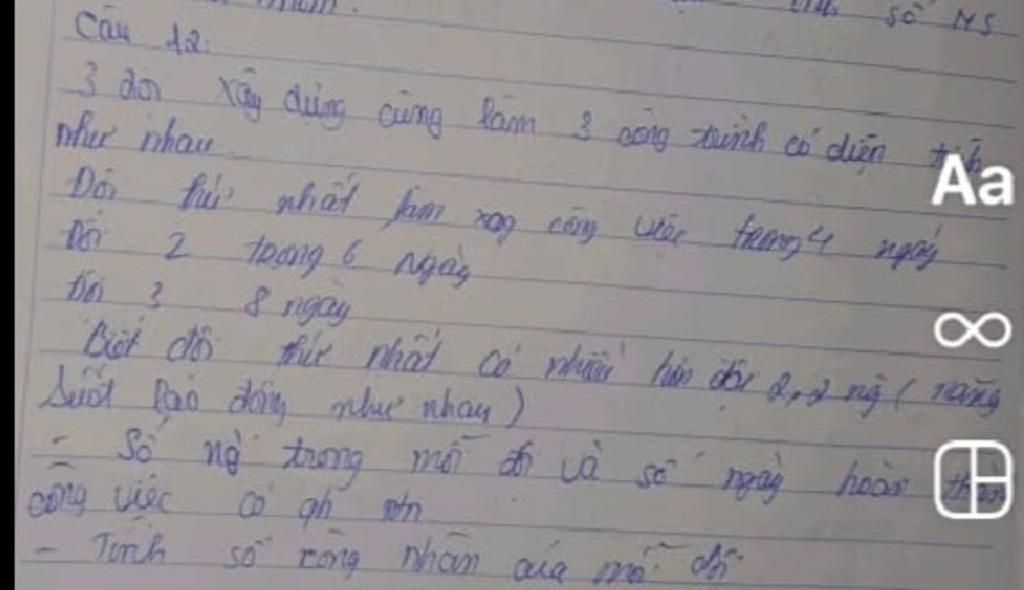 số NS
Câu 12:
3 đội xây dựng cùng làm 3 công trình có diện tích
như nhau
Đội thứ nhất làm xog công việc trong 4 ngày
Đội 2 trong 6 ngày
Đội 3 8 ngày
Biết đội thứ nhất có nhiều hơn đội 2, 2 ng (năng
suất lao động như nhau)
- Số ng trong mỗi đội và số ngày hoàn thàn
công việc có qh ntn
- Tính số công nhân của mỗi đội
Aa